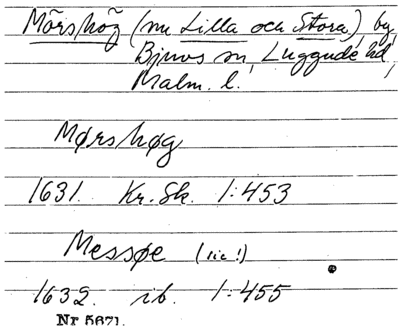 Mörshög (nu Lilla och Stora), by,
Bjuvs sn, Luggude hd,
Malm. l.
Mørshøg
1631. Kr. Sk. 1:453
Messøe (sic!)
1632. ib. 1:455
Nr 5671.